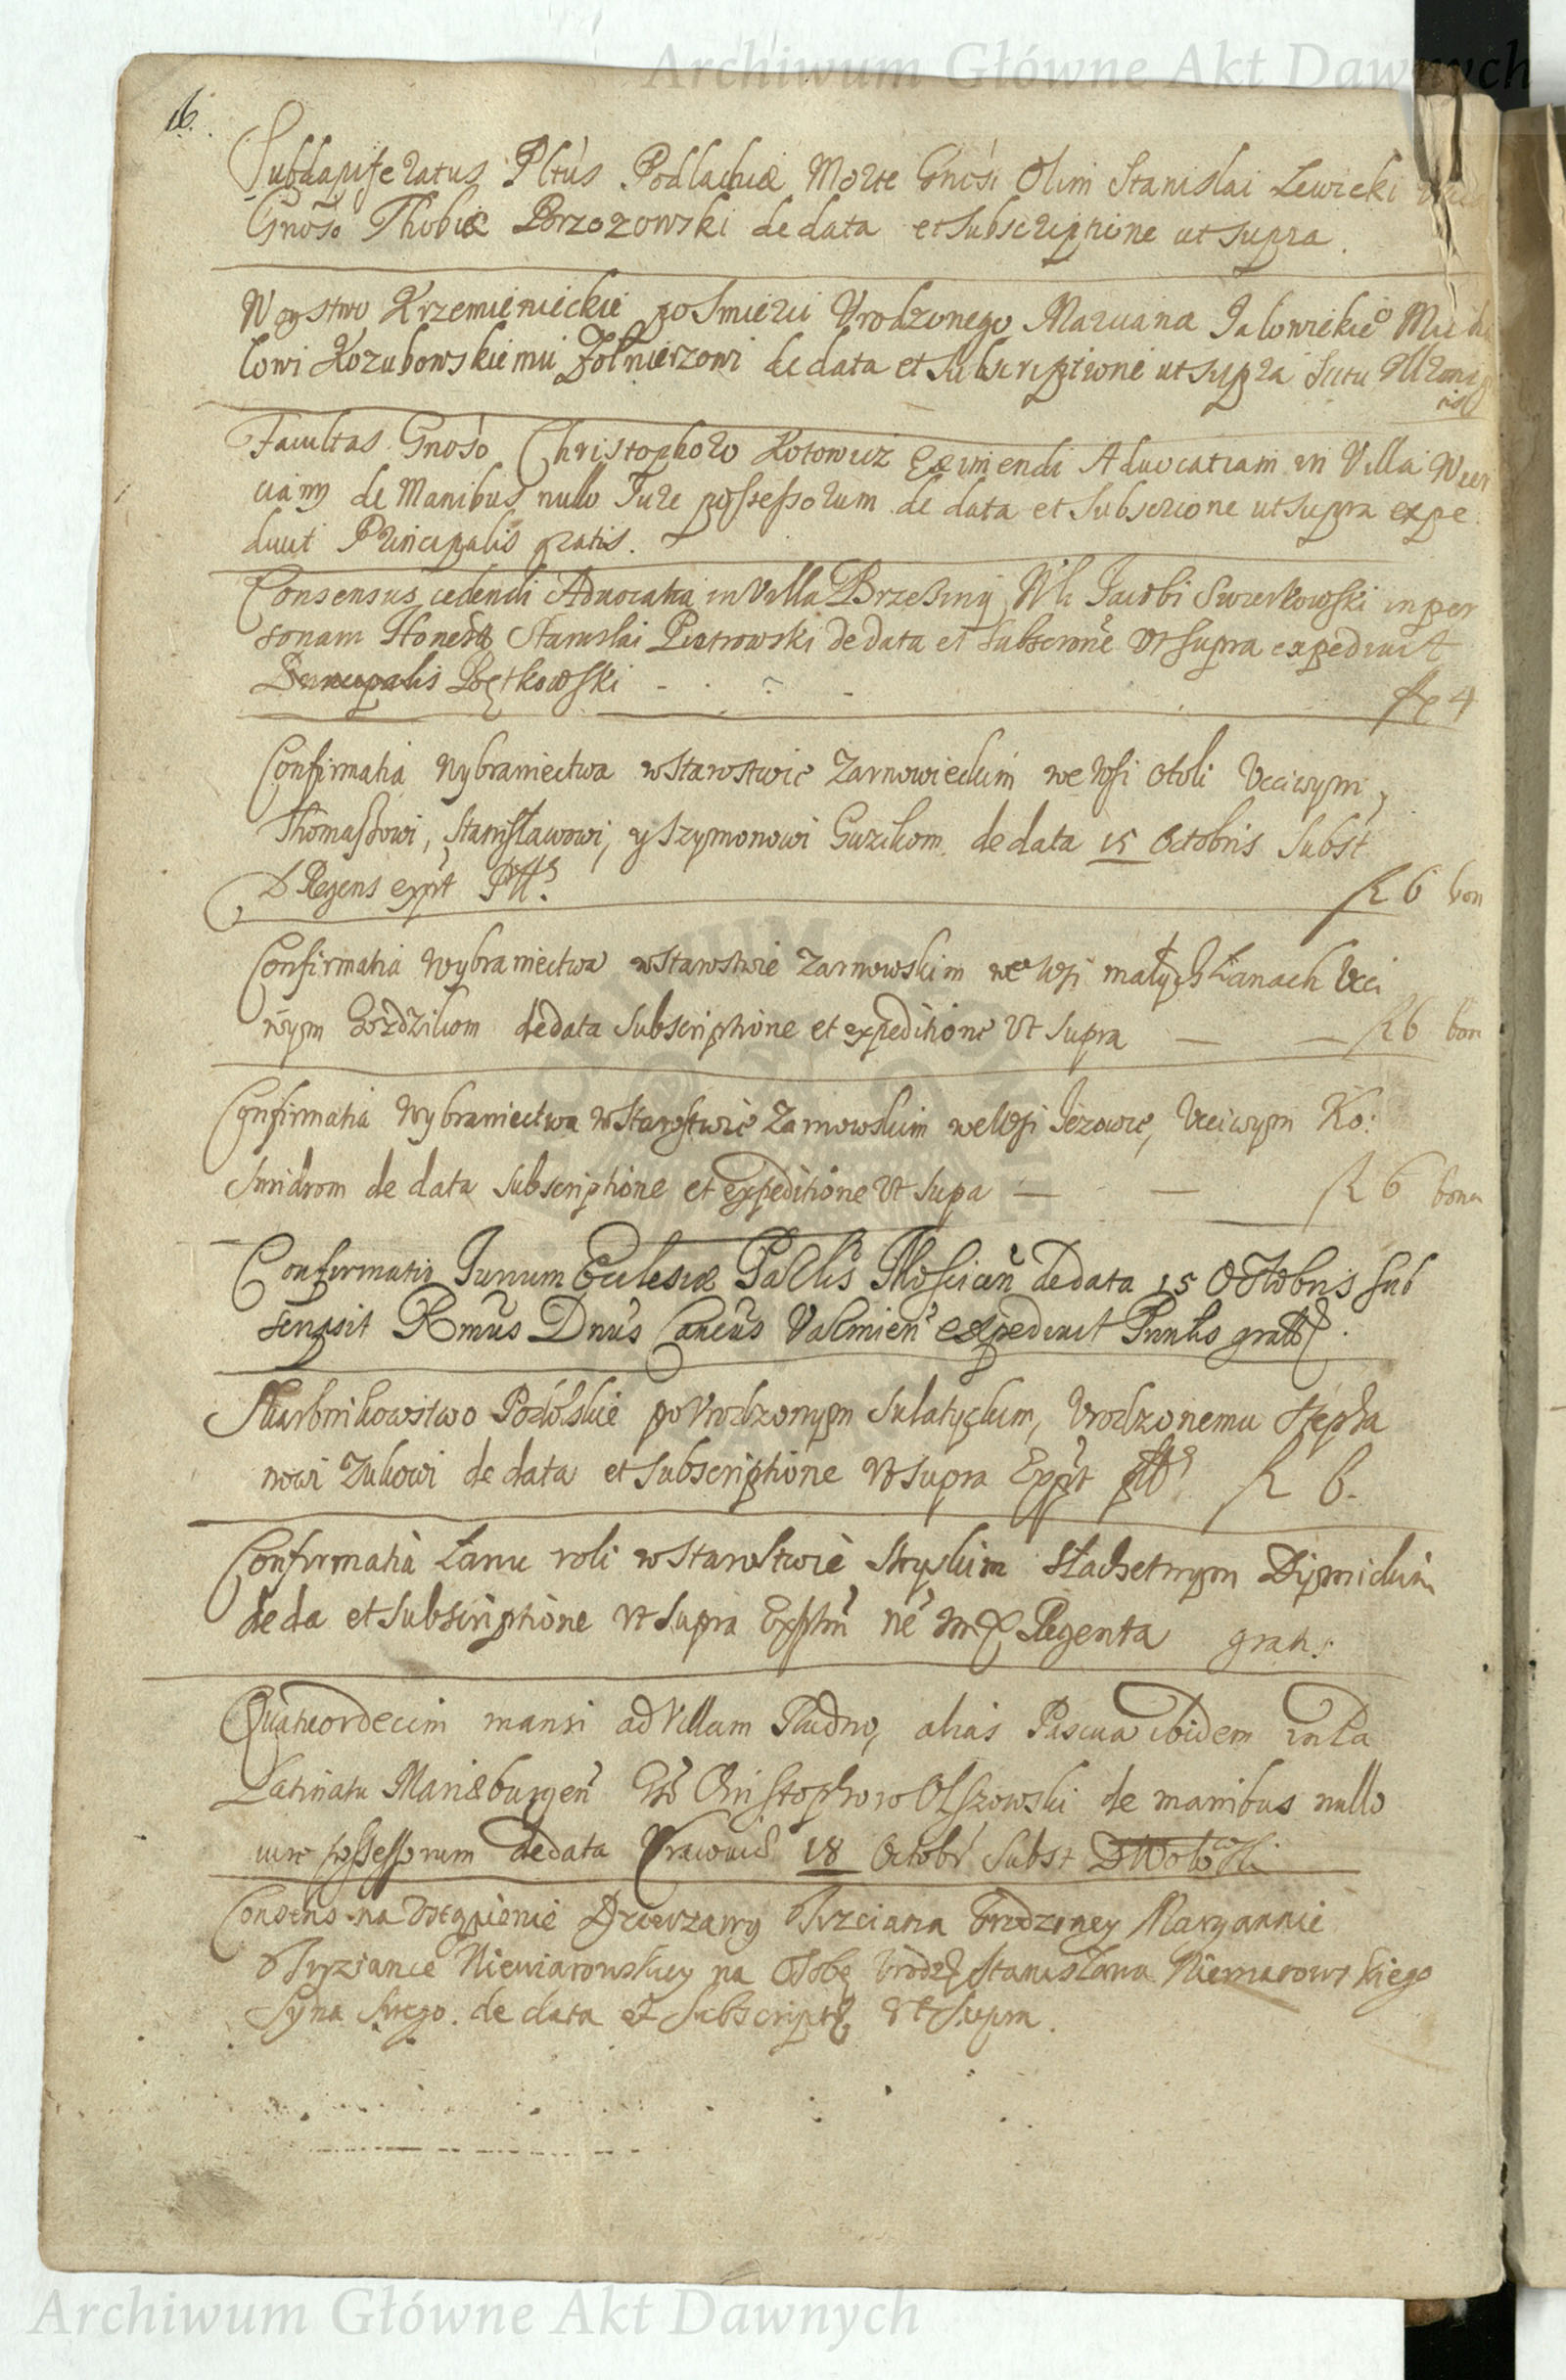 Archiwum Główne Akt Dawnych
16.
Subdapiferatus Pltus Podlachiæ Morte Gnosi Olim Stanislai Lewicki
Gnoso Thobiæ Brzozowski de data et Subscriptione ut supra.
Woystwo Krzemienieckie po Smierci Vrodzonego Marciana Jalowickieo Micha
lowi Kozubowskiemu Zołnierzowi de data et Subscriptione ut supra
Facultas Gnoso Christophoro Kotowicz Eximendi Aduocatiam in Villa Wier
ciany de Manibus nullo Jure possessorum de data et Subscrione ut supra expe
diuit Principalis gratis.
Consensus cedendi Aduocatia in Villa Brzesiny Jacobi Swierkowski in per
sonam Honesti Stanislai Piotrowski de data et Subscrone Vt Supra expediuit
Principalis Pętkowski - . - fl 4
Confirmatia Wybraniectwa w Starostwie Zarnowieckim we Wsi Otoli Vcciwym
Thomaszowi, Stanisławowi, y Szymonowi Guzikom de data 15 Octobris Subst
D Regens expt fl 6 bon
Confirmatia Wybraniectwa w Starostwie Zarnowskim we Wsi małych Lianach Vcci
wym Gozdzikom de data Subscriptione et expeditione Vt Supra — — fl 6 bon
Confirmatia Wybraniectwa w Starostwie Zarnowskim we Wsi Jezowie, Vcciwym Ko:
smidrom de data Subscriptione et Expeditione Vt Supa — — fl 6 bona
Confirmatio Jurium Ecclesiæ Paellis Moscicen de data 15 Octobris Sub
scripsit Rmus Dnus Cancus Valmien expediuit Pnnlis gratis.
Skarbnikowstwo Podolskie po Vrodzonym Sulatyckim, Vrodzonemu Stepha
nowi Zukowi de data et Subscriptione Vt supra Expt fl 6.
Confirmatia Łanu roli w Starostwie Stryskim Slachetnym Dymickim
de da et Subscriptione Vt Supra Regenta gratis.
Quatuordecim mansi ad Villam Pludno, alias Pascua ibidem in Pa
latinatu Mariæburgen Christophoro Olszowski de manibus nullo
iure possessorum de data 18 Octobr Subst D Wolski
Consens na Vstąpienie Dzierzawy Trzciana Vrodzoney Maryannie
Niewiarowskiey na Osobę Vrodz Stanisława Niewiarowskiego
Syna Swego. de data et Subscript Vt Supra.
Archiwum Główne Akt Dawnych